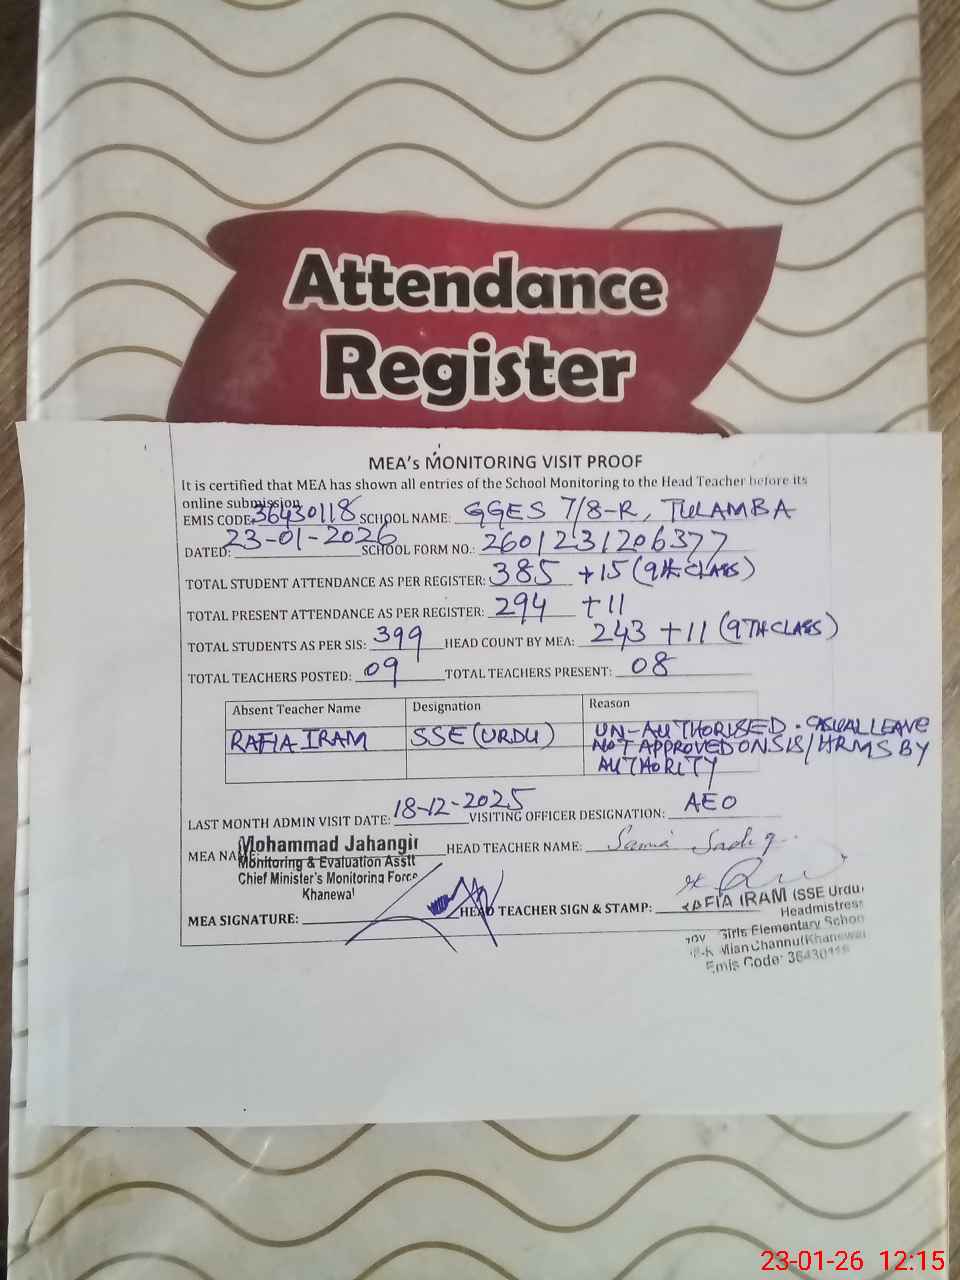 Attendance
Register
MEA's MONITORING VISIT PROOF
It is certified that MEA has shown all entries of the School Monitoring to the Head Teacher before its
online submission
EMIS CODE: 36430118 SCHOOL NAME: GGES 7/8-R, TULAMBA
DATED: 23-01-2026 SCHOOL FORM NO.: 2601231206377
TOTAL STUDENT ATTENDANCE AS PER REGISTER: 385 +15 (9th CLASS)
TOTAL PRESENT ATTENDANCE AS PER REGISTER: 294 +11
TOTAL STUDENTS AS PER SIS: 399 HEAD COUNT BY MEA: 243 +11 (9TH CLASS)
TOTAL TEACHERS POSTED: 09 TOTAL TEACHERS PRESENT: 08
Absent Teacher Name Designation Reason
RAFIA IRAM SSE (URDU) UN-AUTHORISED. CASUAL LEAVE
NOT APPROVED ON SIS/HRMS BY
AUTHORITY
LAST MONTH ADMIN VISIT DATE: 18-12-2025 VISITING OFFICER DESIGNATION: AEO
MEA NAME: Mohammad Jahangir HEAD TEACHER NAME: Samia Sadiq
Monitoring & Evaluation Asstt
Chief Minister's Monitoring Force
Khanewal
MEA SIGNATURE: HEAD TEACHER SIGN & STAMP:
RAFIA IRAM (SSE Urdu)
Headmistress
Gov Girls Elementary School
Mian Channu (Khanewal
Emis Code: 36430118
23-01-26 12:15